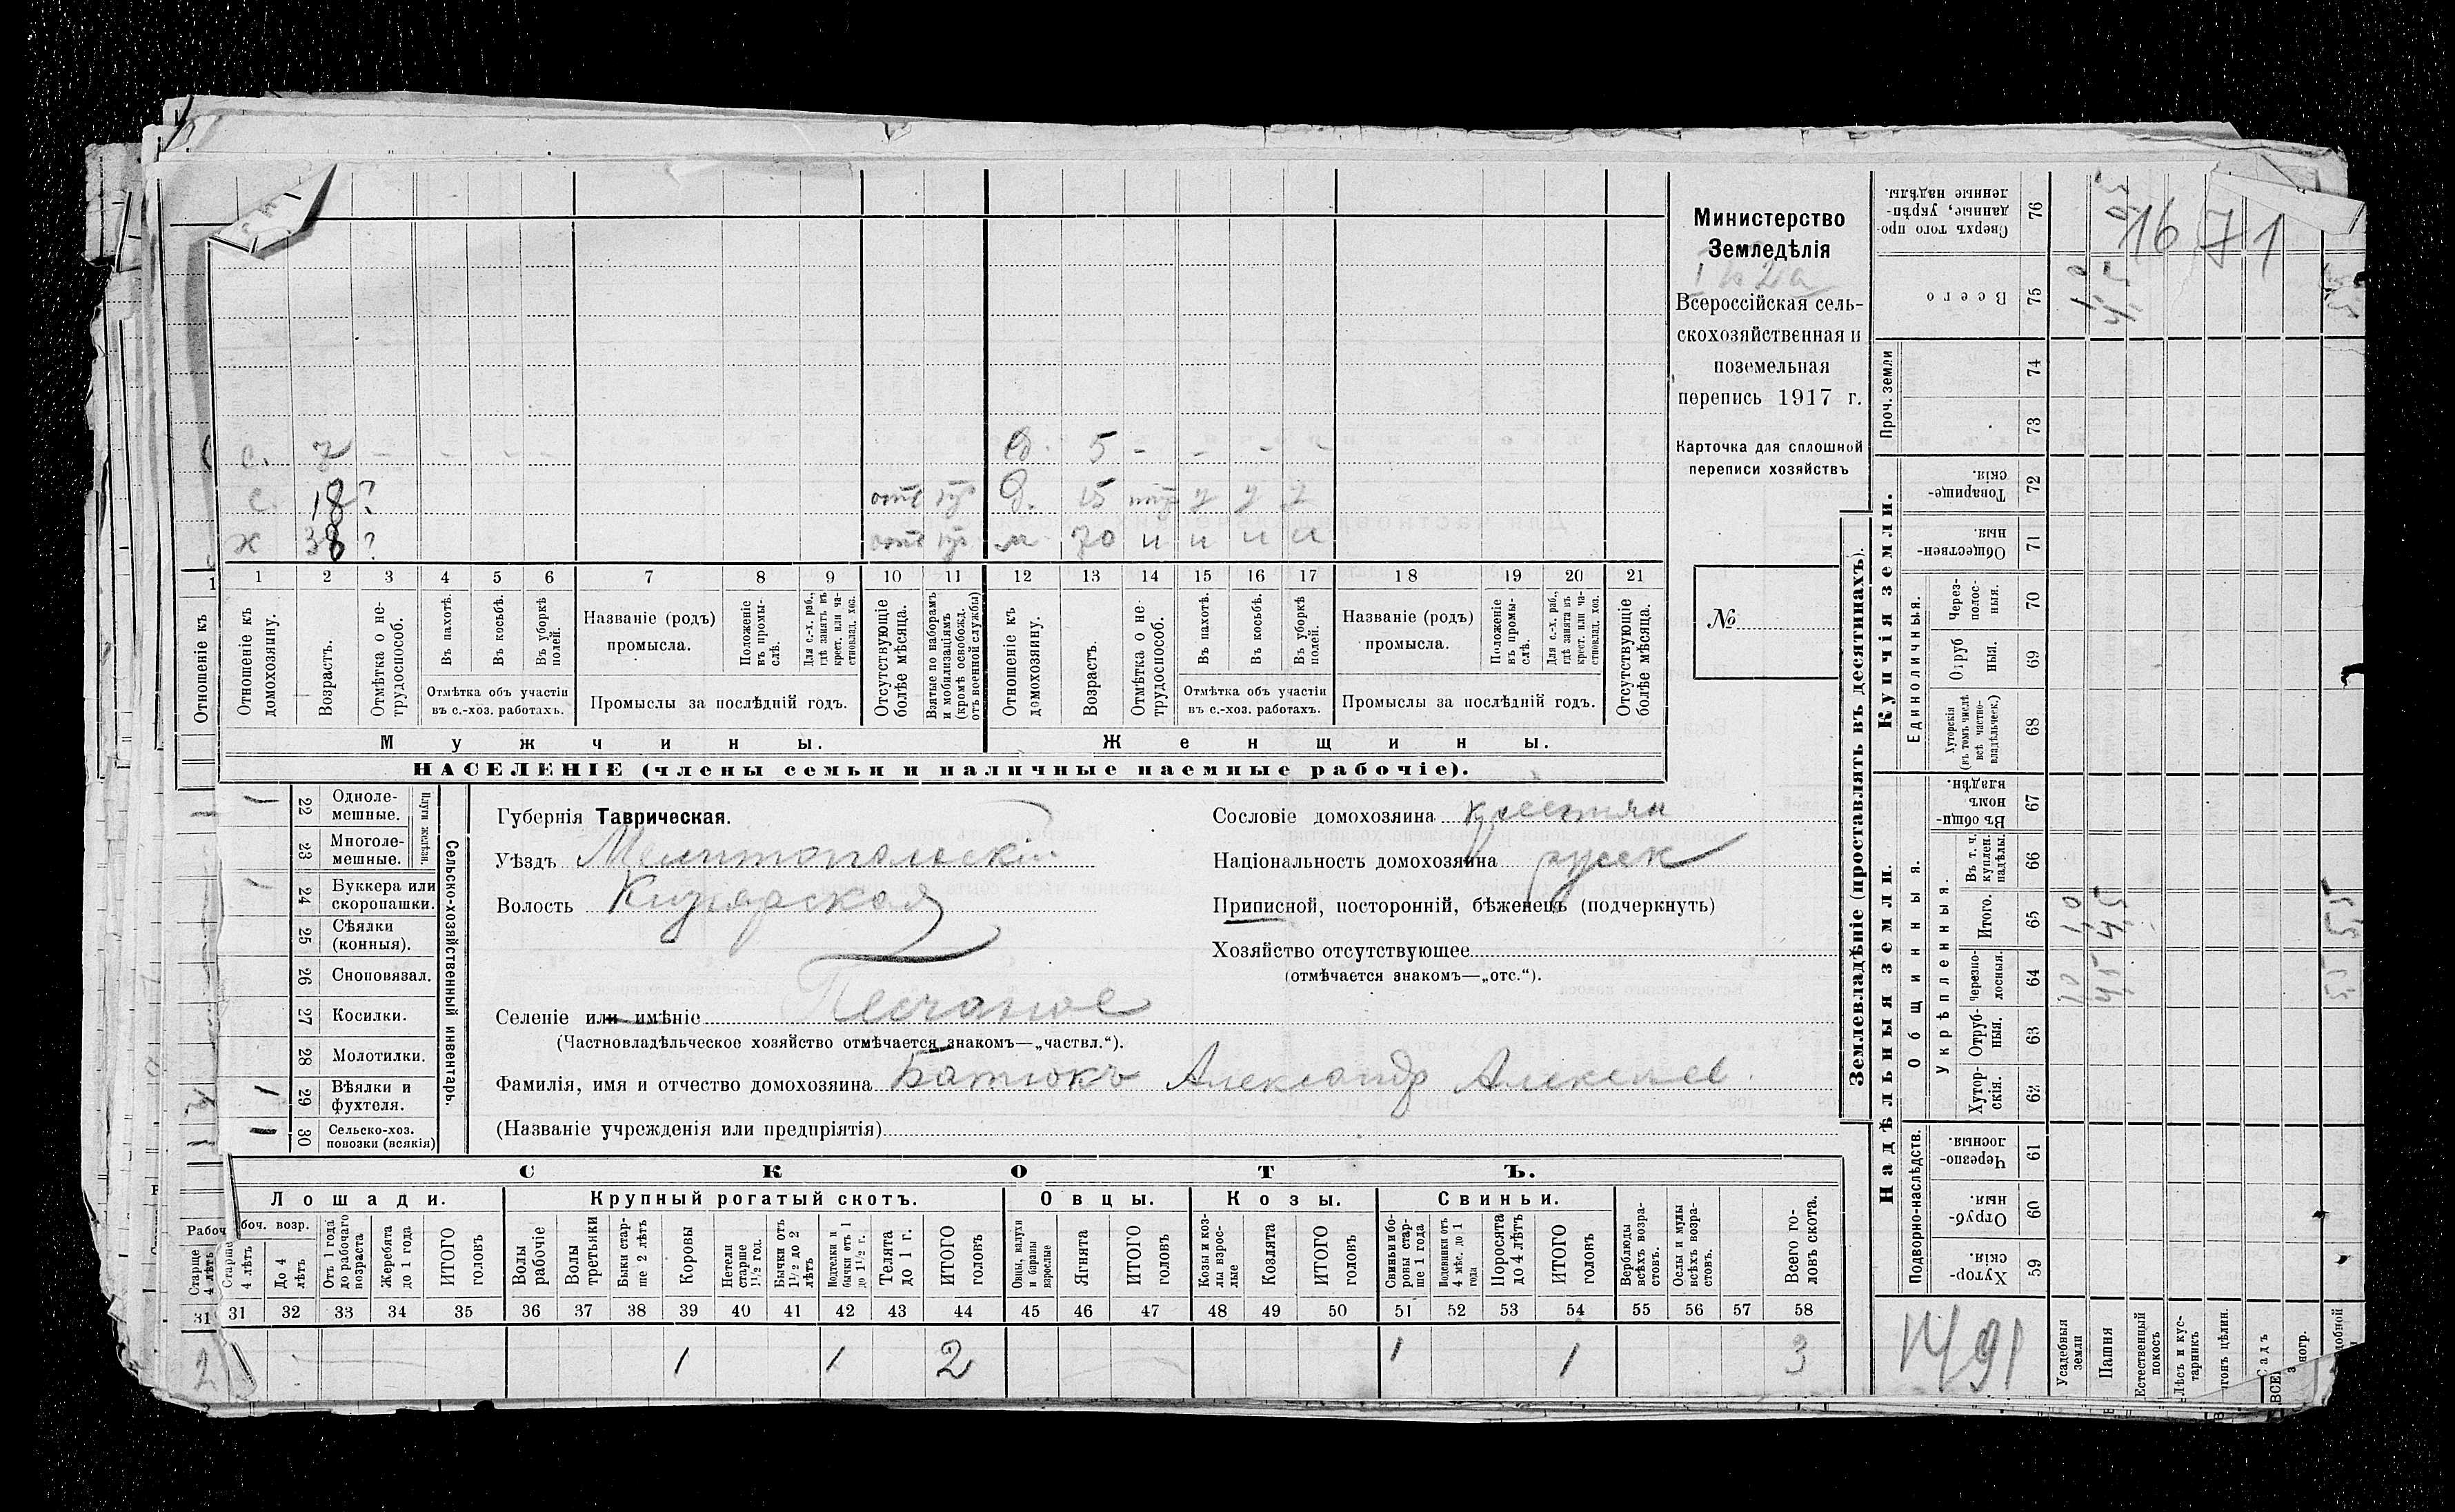 Министерство
Земледѣлія
Всероссійская сель-
скохозяйственная и
поземельная
перепись 1917 г.
Карточка для сплошной
переписи хозяйствъ
№
с. 7 - - - - д. 5 - - - -
с. 18 ? д. 15
38 ? м 70 и и и и
1 2 3 4 5 6 7 8 9 10 11 12 13 14 15 16 17 18 19 20 21
Отношеніе къ домохозяину.
Возрастъ.
Отмѣтка о не-трудоспособ.
Въ пахотѣ.
Въ косьбѣ.
Въ уборкѣ полей.
Отмѣтка объ участіи
въ с.-хоз. работахъ.
Названіе (родъ)
промысла.
Положеніе въ промы-слѣ.
Для с.-х. раб., гдѣ занятъ въ крест. или ча-стновлад. хоз.
Промыслы за послѣдній годъ.
Отсутствующіе болѣе мѣсяца.
Взятые по наборамъ и мобилизаціямъ (кромѣ освобожд. отъ военной службы)
Отношеніе къ домохозяину.
Возрастъ.
Отмѣтка о не-трудоспособ.
Въ пахотѣ.
Въ косьбѣ.
Въ уборкѣ полей.
Отмѣтка объ участіи
въ с.-хоз. работахъ.
Названіе (родъ)
промысла.
Положеніе въ промы-слѣ.
Для с.-х. раб., гдѣ занята въ крест. или ча-стновлад. хоз.
Промыслы за послѣдній годъ.
Отсутствующіе болѣе мѣсяца.
Мужчины. Женщины.
НАСЕЛЕНІЕ (члены семьи и наличные наемные рабочіе).
Сельско-хозяйственный инвентарь.
Плуги желѣзн.
1 22 Одноле-мешные.
23 Многоле-мешные.
1 24 Буккера или скоропашки.
25 Сѣялки (конныя).
26 Сноповязал.
27 Косилки.
28 Молотилки.
1 29 Вѣялки и фухтеля.
1 30 Сельско-хоз. повозки (всякія)
Губернія Таврическая.
Уѣздъ Мелитопольскій
Волость Кизіярская
Селеніе или имѣніе Песчаное
(Частновладѣльческое хозяйство отмѣчается знакомъ—„частвл.“).
Фамилія, имя и отчество домохозяина Батюкъ Александр Алексѣев.
(Названіе учрежденія или предпріятія)
Сословіе домохозяина крестян
Національность домохозяина русск
Приписной, посторонній, бѣженецъ (подчеркнуть)
Хозяйство отсутствующее
(отмѣчается знакомъ—„отс.“).
СКОТЪ.
Лошади. Крупный рогатый скотъ. Овцы. Козы. Свиньи.
Старше 4 лѣтъ
До 4 лѣтъ
Отъ 1 года до рабочаго возраста
Жеребята до 1 года
ИТОГО головъ
Волы рабочіе
Волы третьяки
Быки стар-ше 2 лѣтъ
Коровы
Нетели старше 1½ год.
Бычки отъ 1½ до 2 лѣтъ
Подтелки и бычки отъ 1 до 1½ г.
Телята до 1 г.
ИТОГО головъ
Овцы, валухи и бараны взрослые
Ягнята
ИТОГО головъ
Козы и коз-лы взрос-лые
Козлята
ИТОГО головъ
Свиньи и бо-ровы стар-ше 1 года
Подсвинки отъ 4 мѣс. до 1 года
Поросята до 4 лѣтъ
ИТОГО головъ
Верблюды всѣхъ возра-стовъ.
Ослы и мулы всѣхъ возра-стовъ.
Всего го-ловъ скота.
31 32 33 34 35 36 37 38 39 40 41 42 43 44 45 46 47 48 49 50 51 52 53 54 55 56 57 58
1 1 2 1 1 3
Землевладѣніе (проставлять въ десятинахъ).
Купчія земли.
Надѣльныя земли.
76 Сверхъ того про-данные, укрѣп-ленные надѣлы.
75 Всего
Проч. земли
74
73
72 Товарище-скія.
71 Обществен-ныя.
Единоличныя.
70 Через-полос-ныя.
69 Отруб-ныя.
68 Хуторскія (въ томъ числѣ всѣ частно-владѣльческ.)
Общинныя.
67 Въ общин-номъ владѣн.
Укрѣпленныя.
66 Въ т. ч. куплен. надѣлы.
65 Итого.
64 Черезпо-лосныя.
63 Отруб-ныя.
62 Хутор-скія.
Подворно-наслѣдств.
61 Черезпо-лосныя.
60 Отруб-ныя.
59 Хутор-скія.
Усадебныя земли
Пашня
Естественный покосъ
Лѣсъ и кус-тарникъ
Садъ
1671
1491